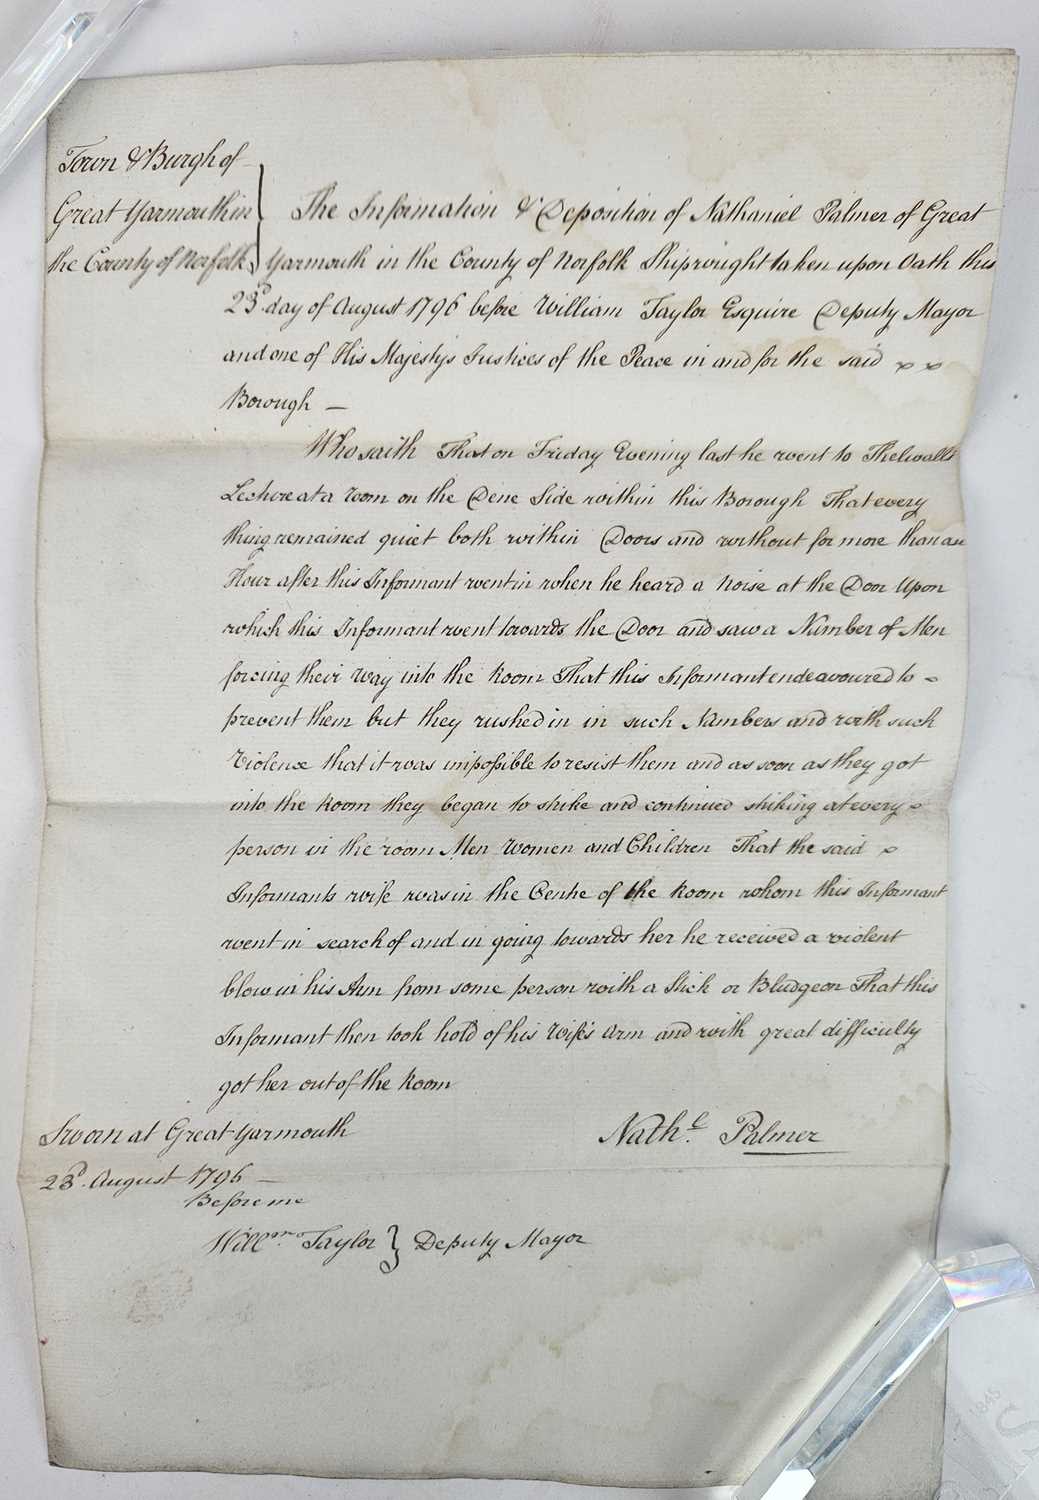 Town & Burgh of
Great Yarmouth in
the County of Norfolk
The Information & Deposition of Nathaniel Palmer of Great
Yarmouth in the County of Norfolk Shipwright taken upon Oath this
23d. day of August 1796 before William Taylor Esquire Deputy Mayor
and one of His Majesty's Justices of the Peace in and for the said
Borough —
Who saith That on Friday Evening last he went to Thelwall's
Lecture at a Room on the Dene Side within this Borough That every
thing remained quiet both within Doors and without for more than an
Hour after this Informant went in when he heard a Noise at the Door Upon
which this Informant went towards the Door and saw a Number of Men
forcing their way into the Room That this Informant endeavoured to
prevent them but they rushed in in such Numbers and with such
Violence that it was impossible to resist them and as soon as they got
into the Room they began to strike and continued striking at every
person in the room Men Women and Children That the said
Informants wife was in the Centre of the Room whom this Informant
went in search of and in going towards her he received a violent
blow in his Arm from some person with a Stick or Bludgeon That this
Informant then took hold of his Wife's Arm and with great difficulty
got her out of the Room
Sworn at Great Yarmouth
23d. August 1796 —
Before me
Nathl. Palmer
Willm. Taylor } Deputy Mayor
1845